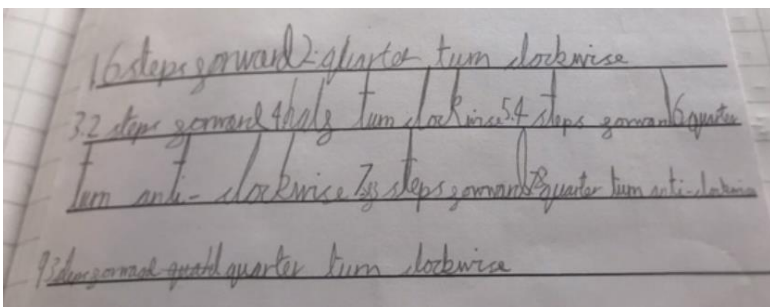 1.6 steps forward 2. quarter turn clockwise
3.2 steps forward 4 half turn clockwise 5.4 steps forward 6 quarter
turn anti-clockwise 7. steps forward 8 quarter turn anti-clockwise
9 3 steps forward quarter turn clockwise